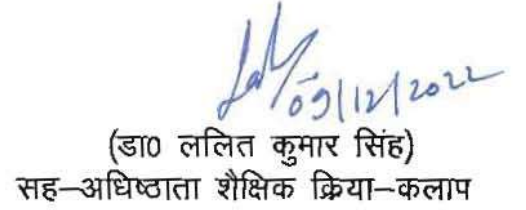 09/12/2022
(डा0 ललित कुमार सिंह)
सह–अधिष्ठाता शैक्षिक क्रिया–कलाप